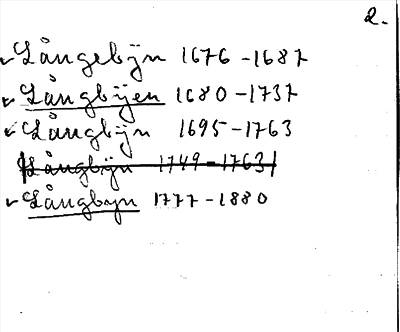 2.
Långebÿn 1676-1687
Långbÿen 1680-1737
Långbÿn 1695-1763
Långbÿn 1749-1763
Långbyn 1777-1880